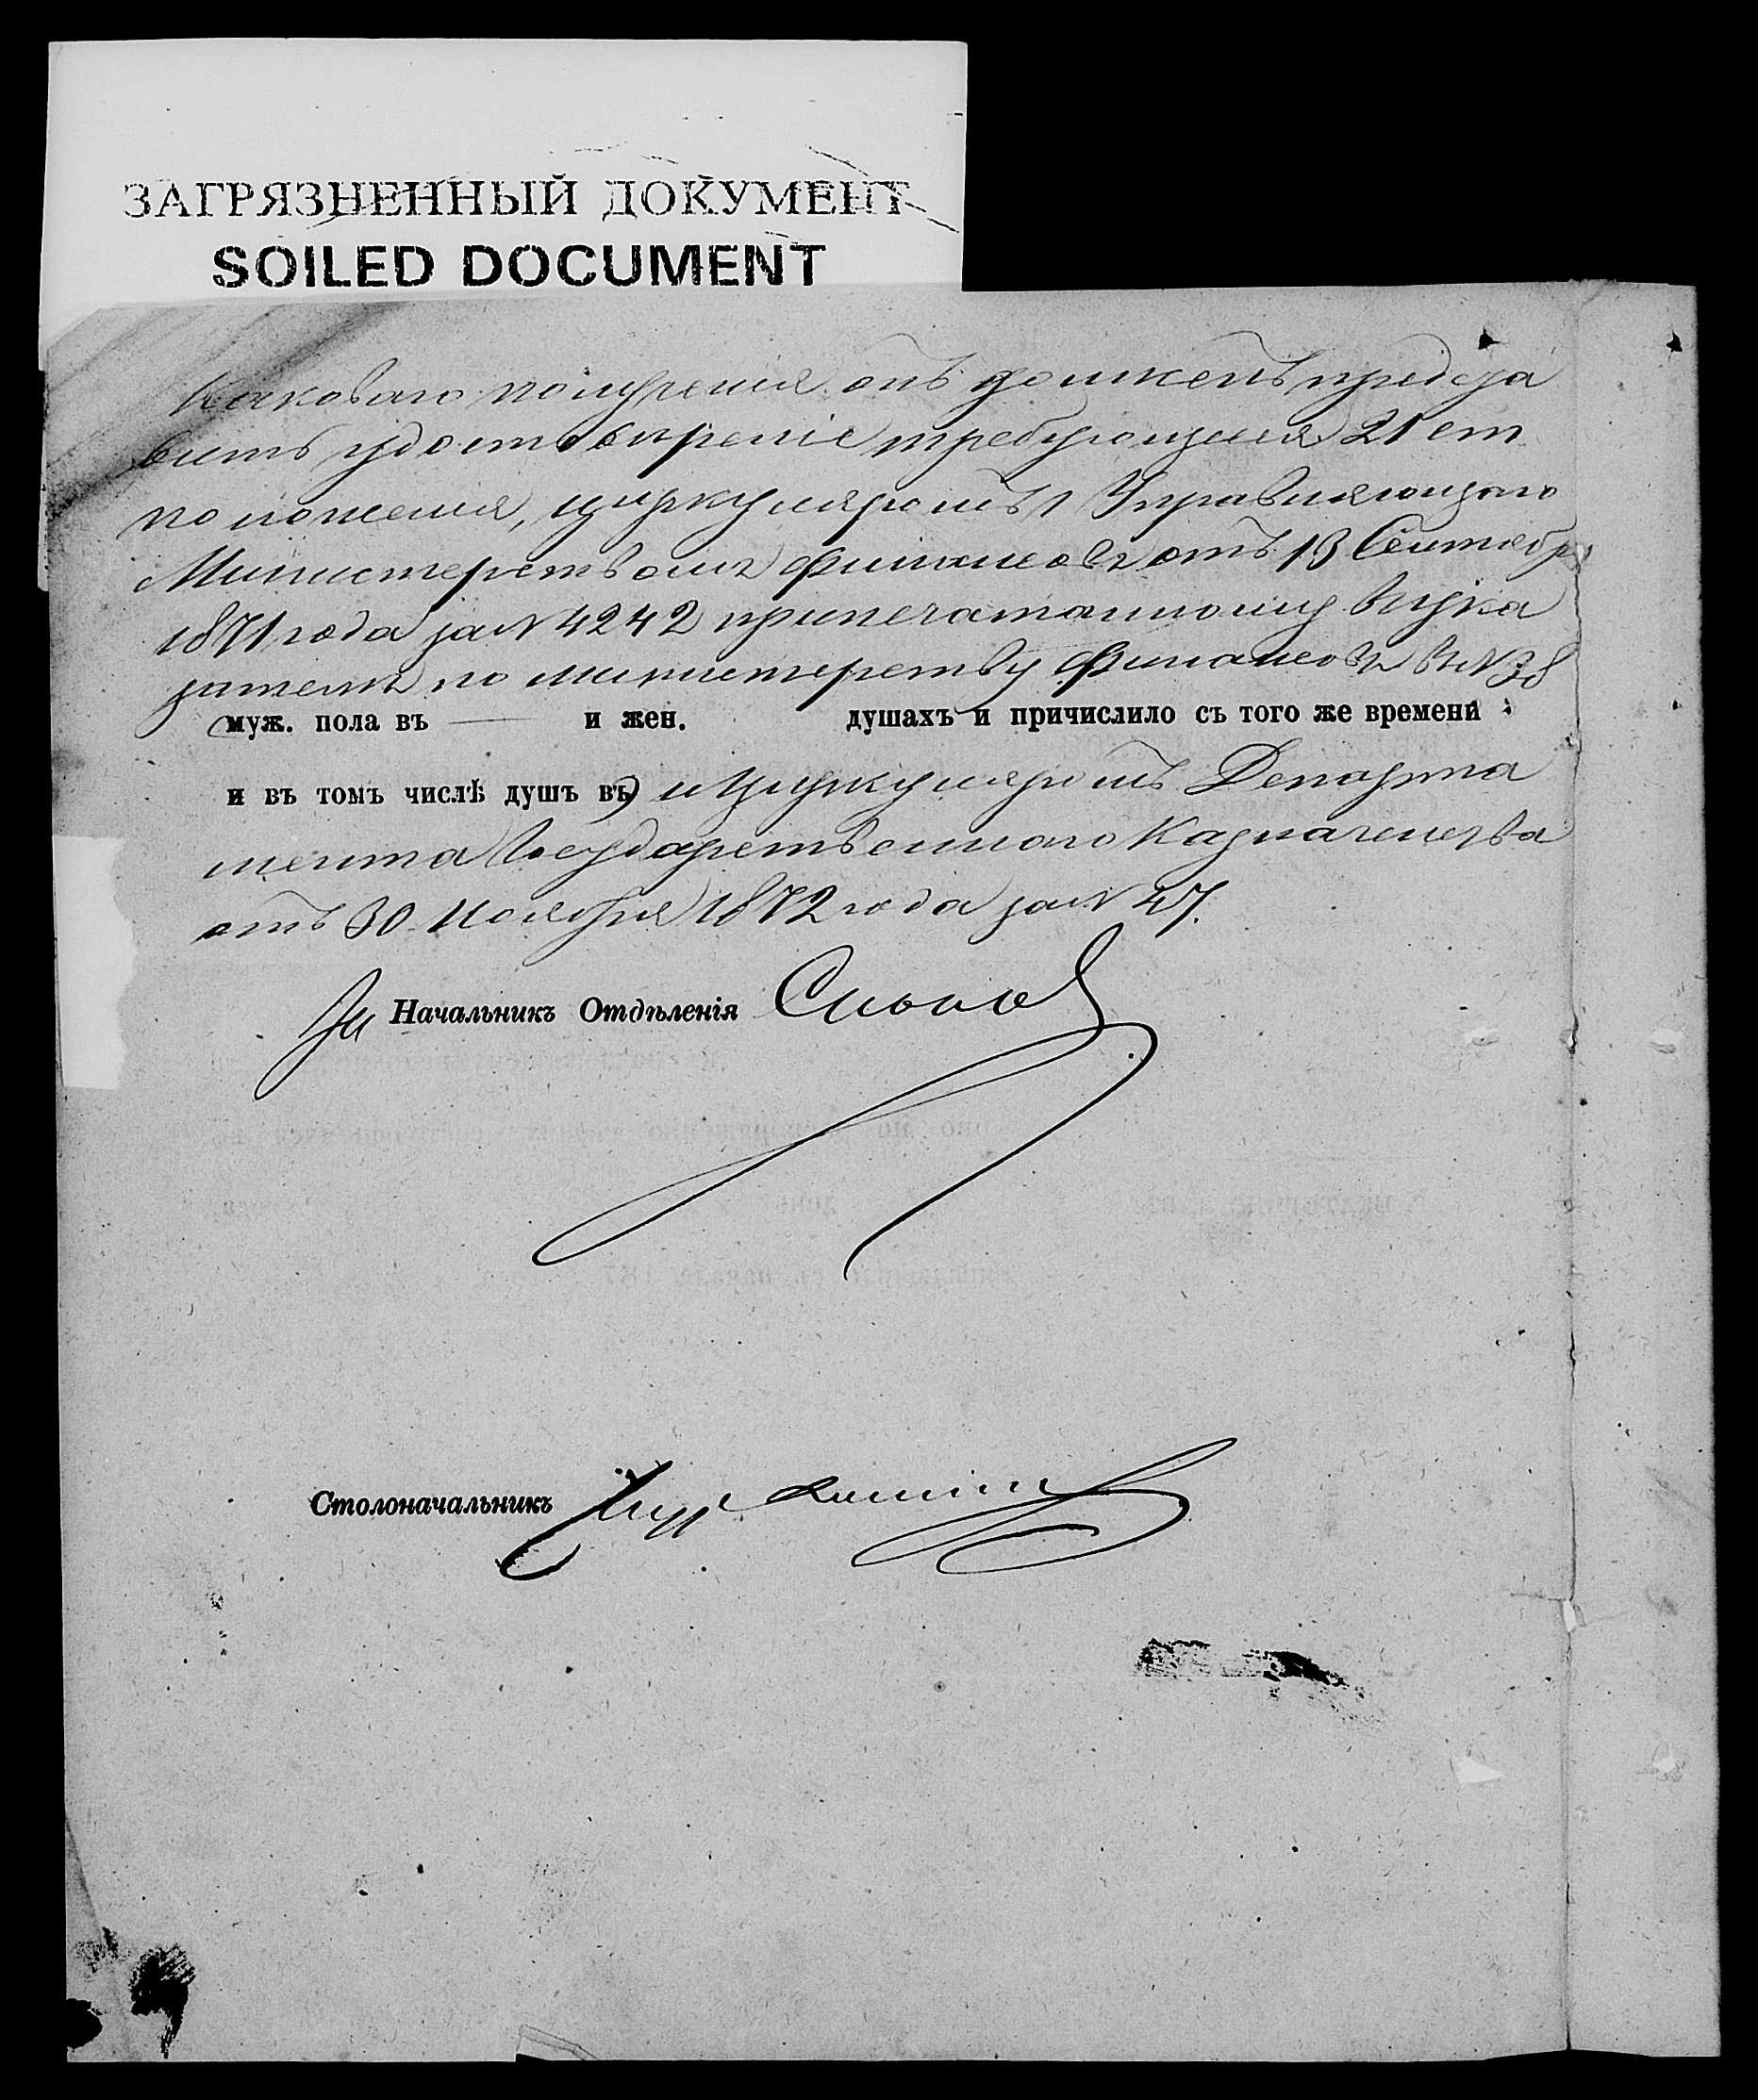 ЗАГРЯЗНЕННЫЙ ДОКУМЕНТ
SOILED DOCUMENT
каковаго полученія онъ долженъ предста
вить удостовѣреніе требующееся 21 ст
положенія, циркуляромъ Управляющаго
Министерствомъ Финансовъ отъ 13 Сентябр
1871 года за № 4242 припечатанному въ Ука
зателѣ по министерству Финансовъ въ № 38
муж. пола въ — и жен. душахъ и причислило съ того же времени
и въ томъ числѣ душъ въ) и Циркуляромъ Департа
мента Государственнаго Казначейства
отъ 30 Ноября 1872 года за № 47.
За Начальникъ Отдѣленія
Столоначальникъ